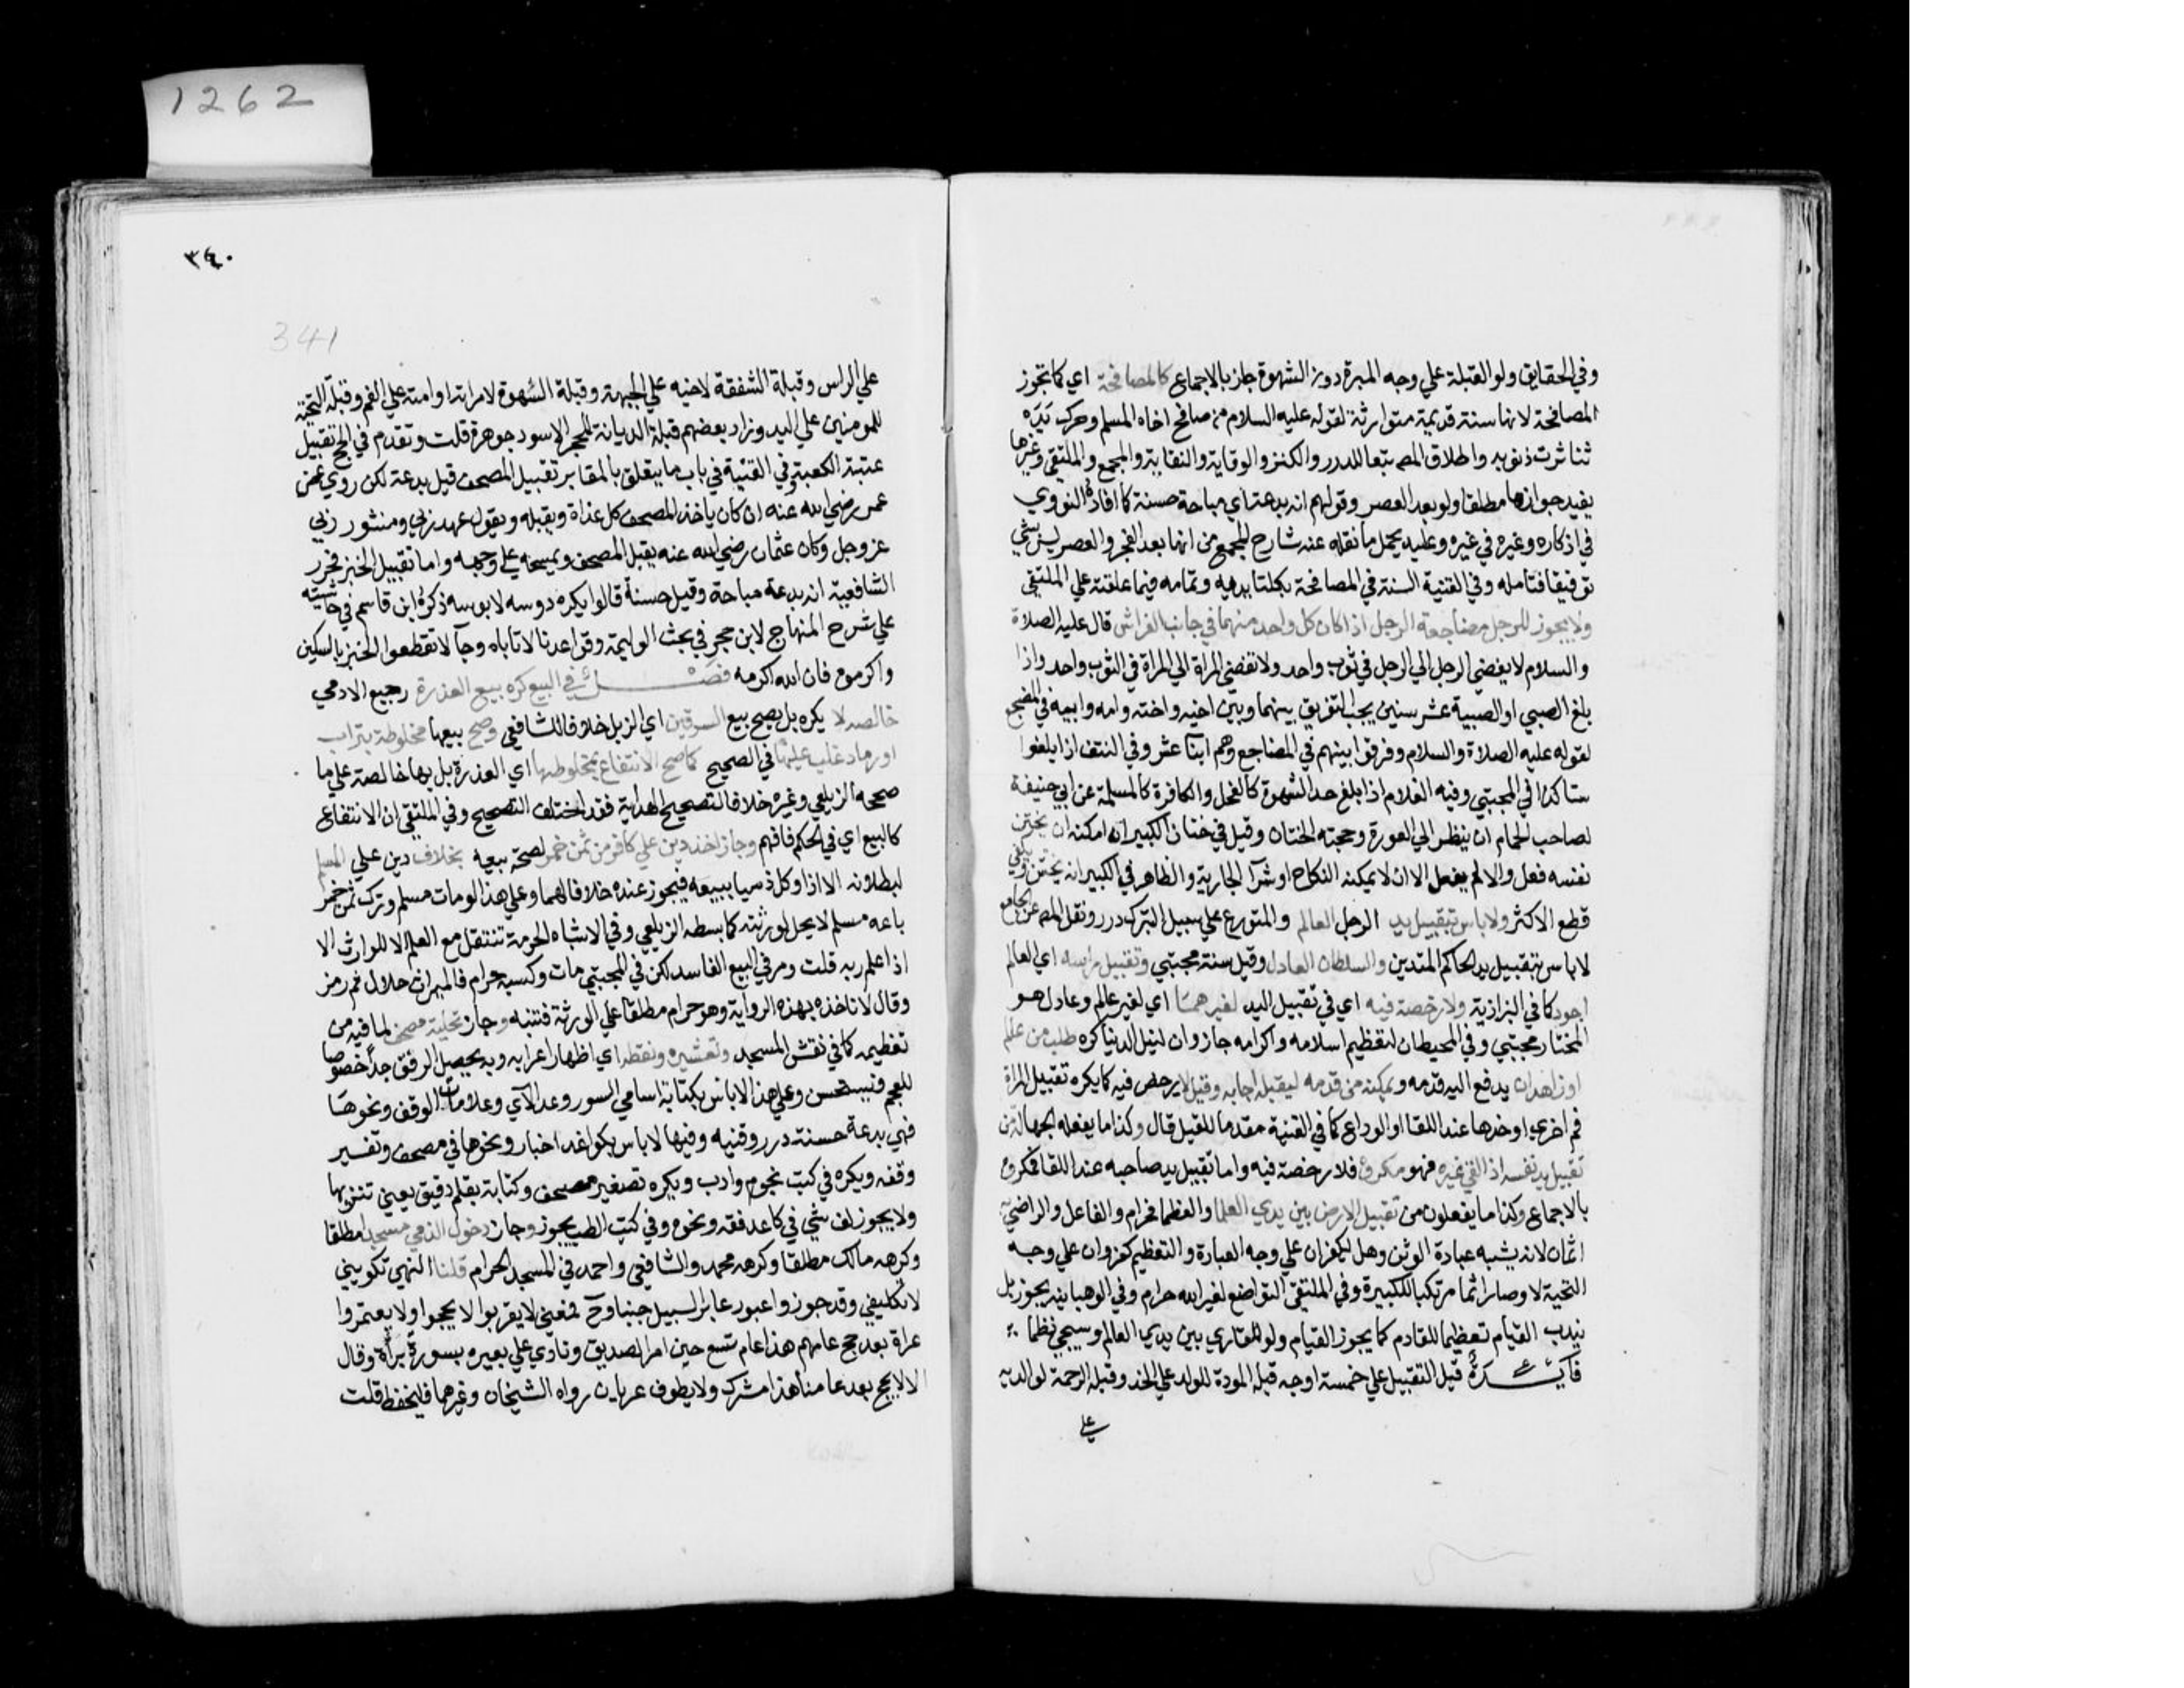 وفي الحقايق ولو القبلة علي وجه المبرة دون الشهوة جاز بالاجماع كالمصافحة اي كما تجوز
المصافحة لانها سنة قديمة متوارثة لقوله عليه السلام من صافح اخاه المسلم وحرك يده
تناثرت ذنوبه واطلاق المص تبعا للدرر والكنز والوقاية والنقاية والمجمع والملتقي وغيرها
يفيد جوازها مطلقا ولو بعد العصر وقولهم انه بدعة اي مباحة حسنة كما افاده النووي
في اذكاره وغيره في غيره وعليه يحمل ما نقله عنه شارح المجمع من انها بعد الفجر والعصر ليس بشي
توفيقا فتامله وفي القنية السنة في المصافحة بكلتا يديه وتمامه فيما علقته علي الملتقي
ولا يجوز للرجل مضاجعة الرجل اذا كان كل واحد منهما في جانب الفراش قال عليه الصلاة
والسلام لا يفضي الرجل الي الرجل في ثوب واحد ولا تفضي المراة الي المراة في الثوب واحد واذا
بلغ الصبي او الصبية عشر سنين يجب التفريق بينهما وبين اخيه واخته وامه وابيه في المضجع
لقوله عليه الصلاة والسلام وفرقوا بينهم في المضاجع وهم ابنا عشر وفي النتف اذا بلغوا
ستا كذا في المجتبي وفيه الغلام اذا بلغ حد الشهوة كالفحل والكافرة كالمسلمة عن ابي حنيفة
لصاحب الحمام ان ينظر الي العورة وحجته الختان وقيل في ختان الكبير ان امكنه ان يختن
نفسه فعل والا لم يفعل الا ان لا يمكنه النكاح او شرآ الجارية والظاهر في الكبير انه يختن ويكفي
قطع الاكثر ولا باس بتقبيل يد الرجل العالم والمتورع علي سبيل التبرك درر ونقل المص عن الجامع
لا باس بتقبيل يد الحاكم المتدين والسلطان العادل وقيل سنة مجتبي وتقبيل راسه اي العالم
اجود كما في البزازية ولا رخصة فيه اي في تقبيل اليد لغيرهما اي لغير عالم وعادل هو
المختار مجتبي وفي المحيط ان لتعظيم اسلامه واكرامه جاز وان لنيل الدنيا كره طلب من عالم
او زاهد ان يدفع اليه قدمه ويمكنه من قدمه ليقبله اجابه وقيل لا يرخص فيه كما يكره تقبيل المراة
فم اخري او خدها عند اللقا او الوداع كما في القنية مقدما للقيل قال وكذا ما يفعله الجهال من
تقبيل يد نفسه اذا لقي غيره فهو مكروه فلا رخصة فيه واما تقبيل يد صاحبه عند اللقا فمكروه
بالاجماع وكذا ما يفعلون من تقبيل الارض بين يدي العلما والعظما فحرام والفاعل والراضي به
اثمان لانه يشبه عبادة الوثن وهل يكفر ان علي وجه العبادة والتعظيم كفر وان علي وجه
التحية لا وصار اثما مرتكبا للكبيرة وفي الملتقي التواضع لغير الله حرام وفي الوهبانية يجوز بل
يندب القيام تعظيما للقادم كما يجوز القيام ولو للقاري بين يدي العالم وسيجي نظما
فايـدة قيل التقبيل علي خمسة اوجه قبلة المودة للولد علي الخد وقبلة الرحمة لوالديه
علي
٣٤٠
341
علي الراس وقبلة الشفقة لاخيه علي الجبهة وقبلة الشهوة لامراته او امته علي الفم وقبلة التحية
للمومنين علي اليد وزاد بعضهم قبلة الديانة للحجر الاسود جوهرة قلت وتقدم في الحج تقبيل
عتبة الكعبة وفي القنية في باب ما يتعلق بالمقابر تقبيل المصحف قيل بدعة لكن روي عن
عمر رضي الله عنه انه كان ياخذ المصحف كل غداة ويقبله ويقول عهد ربي ومنشور ربي
عز وجل وكان عثمان رضي الله عنه يقبل المصحف ويمسحه علي وجهه واما تقبيل الخبز فحرر
الشافعية انه بدعة مباحة وقيل حسنة قالوا يكره دوسه لا بوسه ذكره ابن قاسم في حاشيته
علي شرح المنهاج لابن حجر في بحث الوليمة وقواعدنا لا تاباه وجآ لا تقطعوا الخبز بالسكين
واكرموه فان الله اكرمه فصـل في البيع كره بيع العذرة رجيع الادمي
خالصه لا يكره بل يصح بيع السرقين اي الزبل خلافا للشافعي وصح بيعها مخلوطة بتراب
او رماد غلب عليها في الصحيح كما صح الانتفاع بمخلوطها اي العذرة بل بها خالصة علي ما
صححه الزيلعي وغيره خلافا لتصحيح الهداية فقد اختلف التصحيح وفي الملتقي ان الانتفاع
كالبيع اي في الحكم فافهم وجاز اخذ دين علي كافر من ثمن خمر لصحة بيعه بخلاف دين علي المسلم
لبطلانه الا اذا وكل ذميا ببيعه فيجوز عنده خلافا لهما وعلي هذا لو مات مسلم وترك ثمن خمر
باعه مسلم لا يحل لورثته كما بسطه الزيلعي وفي الاشباه الحرمة تنتقل مع العلم الا للوارث الا
اذا علم ربه قلت ومر في البيع الفاسد لكن في المجتبي مات وكسبه حرام فالميراث حلال ثم رمز
وقال لا ناخذ بهذه الرواية وهو حرام مطلقا علي الورثة فتنبه وجاز تحلية مصحف لما فيه من
تعظيمه كما في نقش المسجد وتعشيره ونقطه اي اظهار اعرابه وبه يحصل الرفق جدا خصوصا
للعجم فيستحسن وعلي هذا لا باس بكتابة اسامي السور وعد الآي وعلامات الوقف ونحوها
فهي بدعة حسنة درر وقنيه وفيها لا باس بكواغد اخبار ونحوها في مصحف وتفسير
وفقه ويكره في كتب نجوم وادب ويكره تصغير مصحف وكتابة بقلم دقيق يعني تنزيها
ولا يجوز لف شي في كاغد فقه ونحوه وفي كتب الطب يجوز وجاز دخول الذمي مسجدا مطلقا
وكرهه مالك مطلقا وكرهه محمد والشافعي واحمد في المسجد الحرام قلنا النهي تكويني
لا تكليفي وقد جوزوا عبور عابر السبيل جنبا وح فمعني لا يقربوا لا يحجوا ولا يعتمروا
عراة بعد حج عامهم هذا عام تسع حين امر الصديق ونادي علي بعيره بسورة برآة وقال
الا لا يحج بعد عامنا هذا مشرك ولا يطوف عريان رواه الشيخان وغيرهما فليحفظ قلت
1262